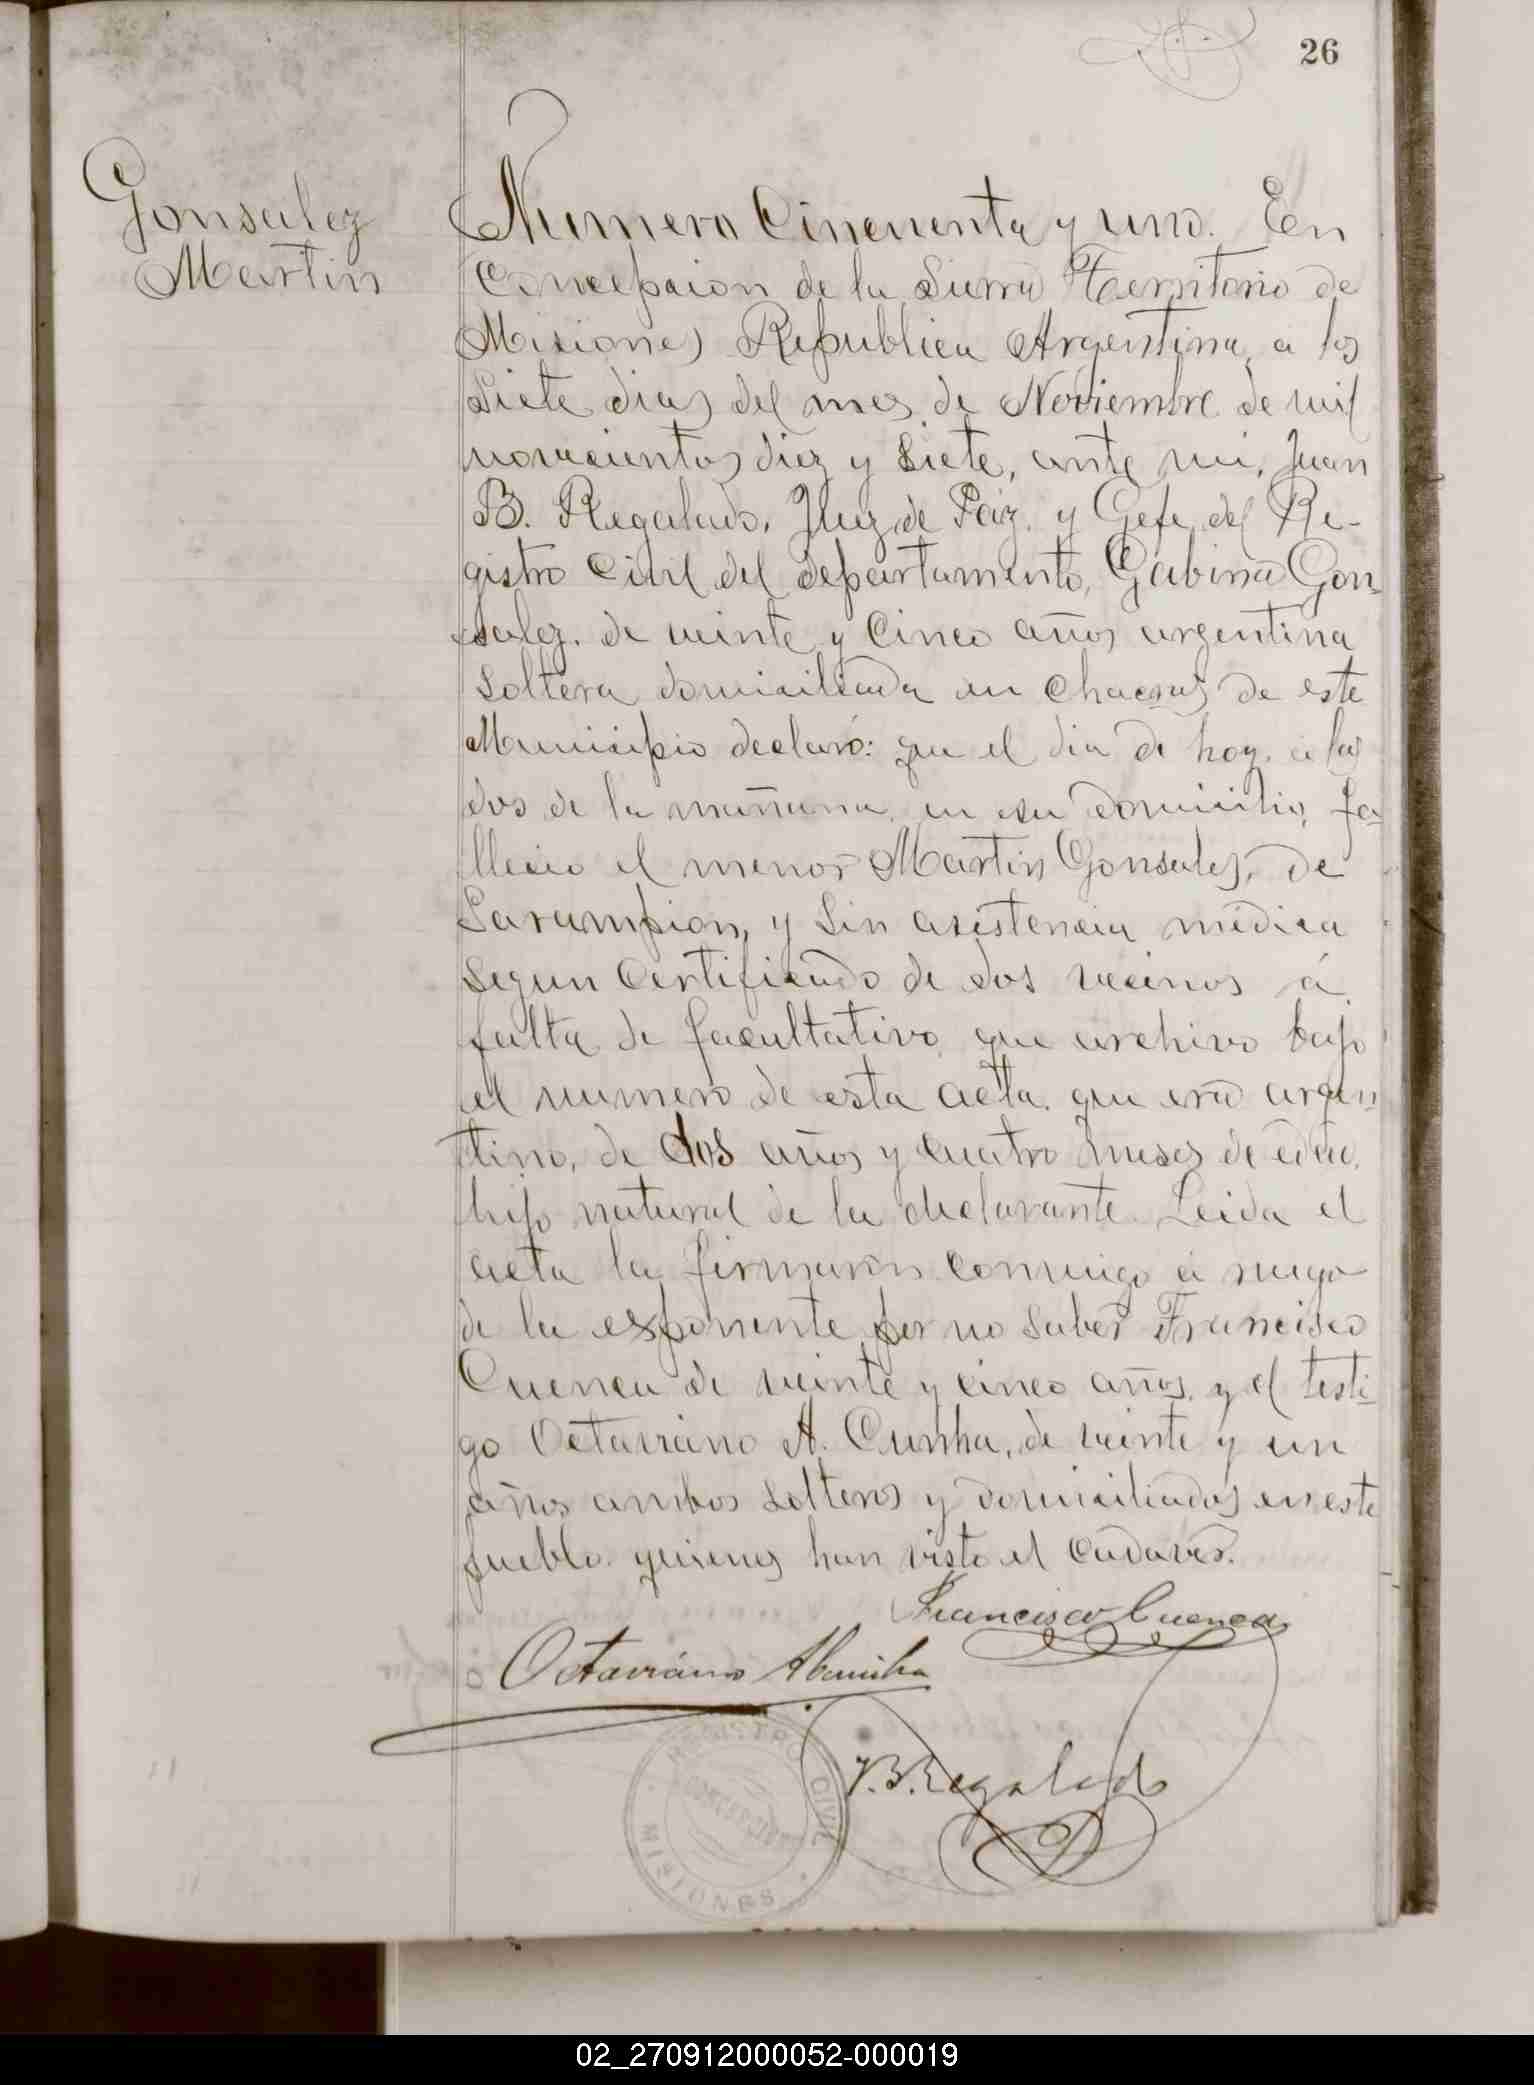 26
Gonsalez
Martin
Numero Cincuenta y uno. En
Concepcion de la Sierra Territorio de
Misiones Republica Argentina, a los
siete dias del mes de Noviembre de mil
novecientos diez y siete, ante mi, Juan
B. Regalado, Juez de Paz y Gefe del Re-
gistro Civil del departamento, Gabina Gon-
salez. de veinte y cinco años argentina
soltera domiciliada en chacras de este
Municipio declaró: que el dia de hoy, a las
dos de la mañana, en su domicilio, fa-
llecio el menor Martin Gonsalez, de
Sarampion, y sin asistencia medica
segun certificado de dos vecinos á
falta de facultativo, que archivo bajo
el numero de esta acta. que era argen-
tino, de dos años y cuatro meses de edad,
hijo natural de la declarante. Leida el
acta la firmaron conmigo á ruego
de la exponente por no saber Francisco
Cuenca de veinte y cinco años, y el testi-
go Octaviano A. Cunha, de veinte y un
años ambos solteros y domiciliados en este
pueblo. quienes han visto el cadaver.
Francisco Cuenca
Octaviano Acunha
J. B. Regalado
REGISTRO CIVIL
CONCEPCION
MISIONES
02_270912000052-000019